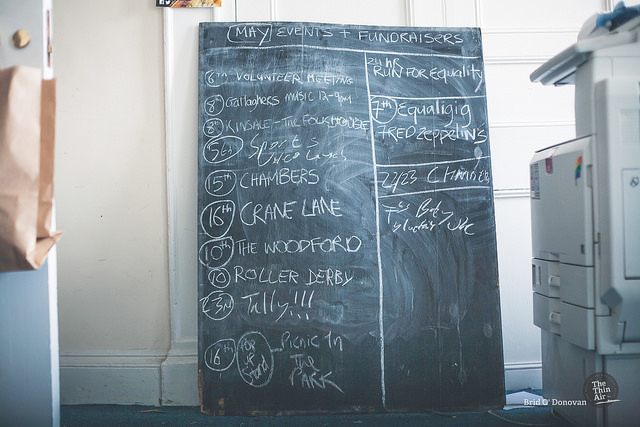 MAY EVENTS + FUNDRAISERS
6th VOLUNTEER MEETING
8th Gallaghers MUSIC 12-9pm
8th KINSALE - THE FOLKHOUSE
15th CHAMBERS
16th CRANE LANE
10th THE WOODFORD
10 ROLLER DERBY
23rd Tully!!!
16th POP UP Stand - PICNIC In
THE
PARK
24 HR
RUN FOR Equality
7th Equaligig
FRED Zeppelin's
22/23
Brid O' Donovan
The
Thin
Air